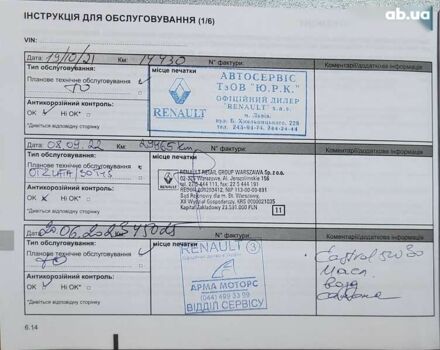 ab.ua
ІНСТРУКЦІЯ ДЛЯ ОБСЛУГОВУВАННЯ (1/6)
VIN:
Дата: 19/10/21 Км: 14430 N° фактури: Коментарі/додаткова інформація
Тип обслуговування: місце печатки
Планове технічне обслуговування
ТО
Антикорозійний контроль:
OK Ні OK* □
*Дивіться відповідну сторінку
RENAULT
АВТОСЕРВІС
ТзОВ "Ю.Р.К."
ОФІЦІЙНИЙ ДИЛЕР
"RENAULT"
м. Львів,
вул. Б. Хмельницького, 228
Дата: 08.09.22 Км: 29965 km N° фактури: Коментарі/додаткова інформація
Тип обслуговування: місце печатки
Планове технічне обслуговування
Антикорозійний контроль:
OK Ні OK* □
*Дивіться відповідну сторінку
RENAULT
RENAULT RETAIL GROUP WARSZAWA Sp. z o.o.
02-325 Warszawa, Al. Jerozolimskie 156
Sąd Rejonowy dla m. St. Warszawy
XII Wydział Gospodarczy, KRS 0000021035
Kapitał Zakładowy 23.531.000 PLN
11
Дата: N° фактури: Коментарі/додаткова інформація
Тип обслуговування: місце печатки
Планове технічне обслуговування
Антикорозійний контроль:
OK Ні OK* □
*Дивіться відповідну сторінку
RENAULT 3
АРМА МОТОРС
(044) 499 33 99
ВІДДІЛ СЕРВІСУ
Castrol 5W30
Масл.
6.14